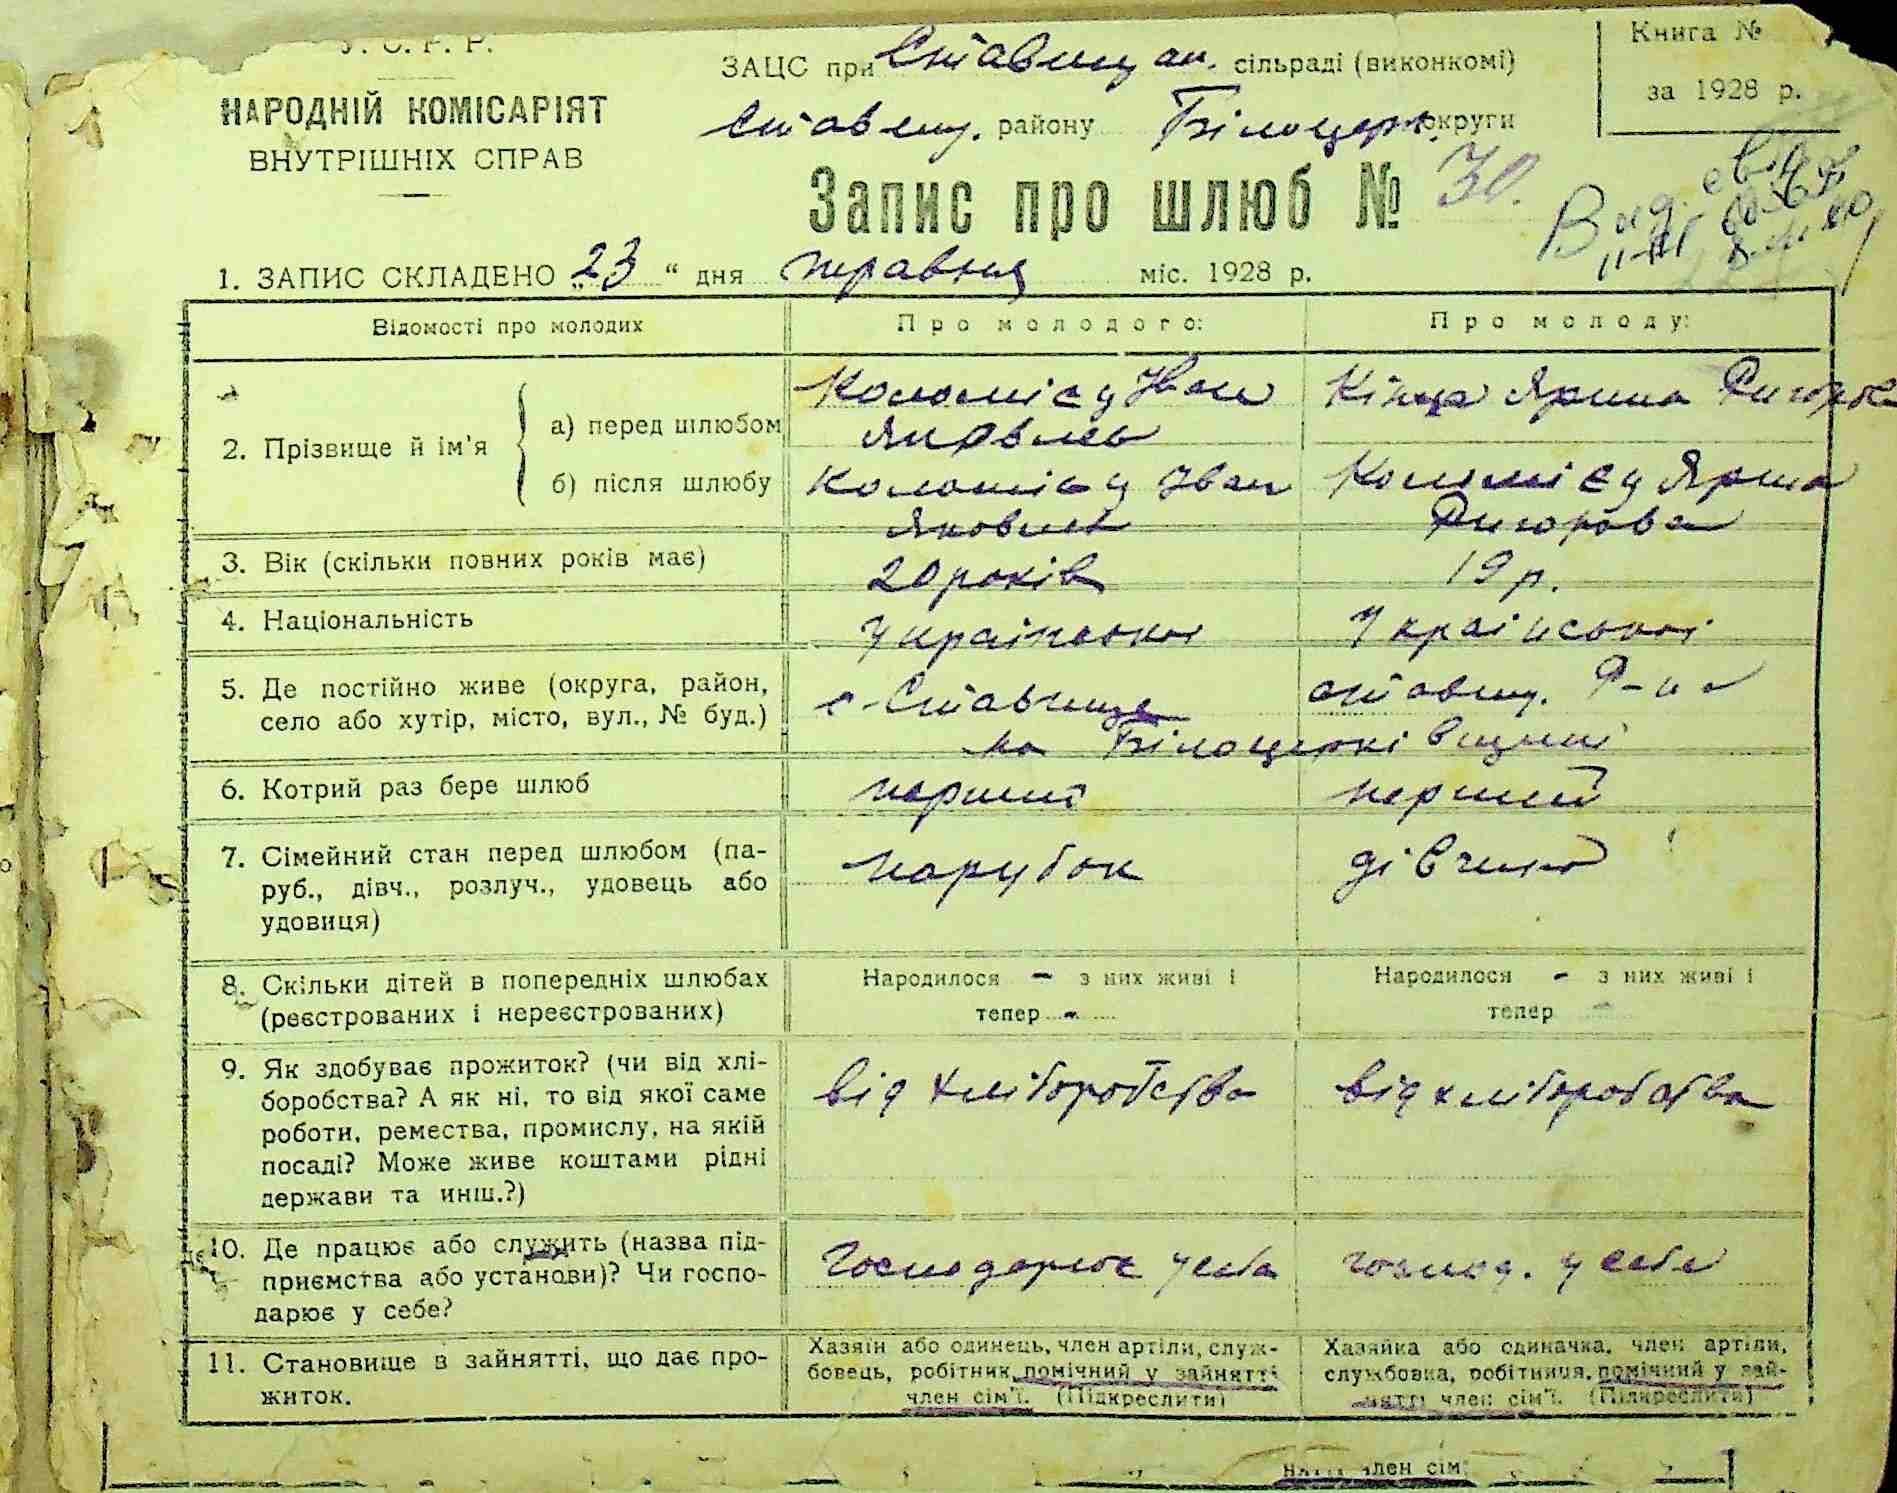 У. С. Р. Р.
НАРОДНІЙ КОМІСАРІЯТ
ВНУТРІШНІХ СПРАВ
ЗАЦС при Ставищан. сільраді (виконкомі)
Ставищ. району Білоцерк. округи
Книга №
за 1928 р.
Запис про шлюб № 30.
1. ЗАПИС СКЛАДЕНО „23“ дня травня міс. 1928 р.
Відомості про молодих
Про молодого:
Про молоду:
2. Прізвище й ім'я
а) перед шлюбом
Коломієц Іван
Яковлев
Кінца Ярина Ригорова
б) після шлюбу
Коломієц Іван
Яковлев
Коломієц Ярина
Ригорова
3. Вік (скільки повних років має)
20 років
19 р.
4. Національність
Української
Української
5. Де постійно живе (округа, район,
село або хутір, місто, вул., № буд.)
с. Ставище
ставищ. Р-на
на Білоцерківщині
6. Котрий раз бере шлюб
перший
перший
7. Сімейний стан перед шлюбом (па-
руб., дівч., розлуч., удовець або
удовиця)
парубок
дівчина
8. Скільки дітей в попередніх шлюбах
(реєстрованих і нереєстрованих)
Народилося - з них живі і
тепер -
Народилося - з них живі і
тепер -
9. Як здобуває прожиток? (чи від хлі-
боробства? А як ні, то від якої саме
роботи, ремества, промислу, на якій
посаді? Може живе коштами рідні
держави та инш.?)
від хліборобства
від хліборобства
10. Де працює або служить (назва під-
приємства або установи)? Чи госпо-
дарює у себе?
Господарює у себе
господ. у себе
11. Становище в зайнятті, що дає про-
житок.
Хазяїн або одинець, член артіли, служ-
бовець, робітник, помічний у зайнятті
член сім'ї. (Підкреслити)
Хазяйка або одиначка, член артіли,
службовка, робітниця, помічний у зай-
нятті член сім'ї. (Підкреслити)
член сім